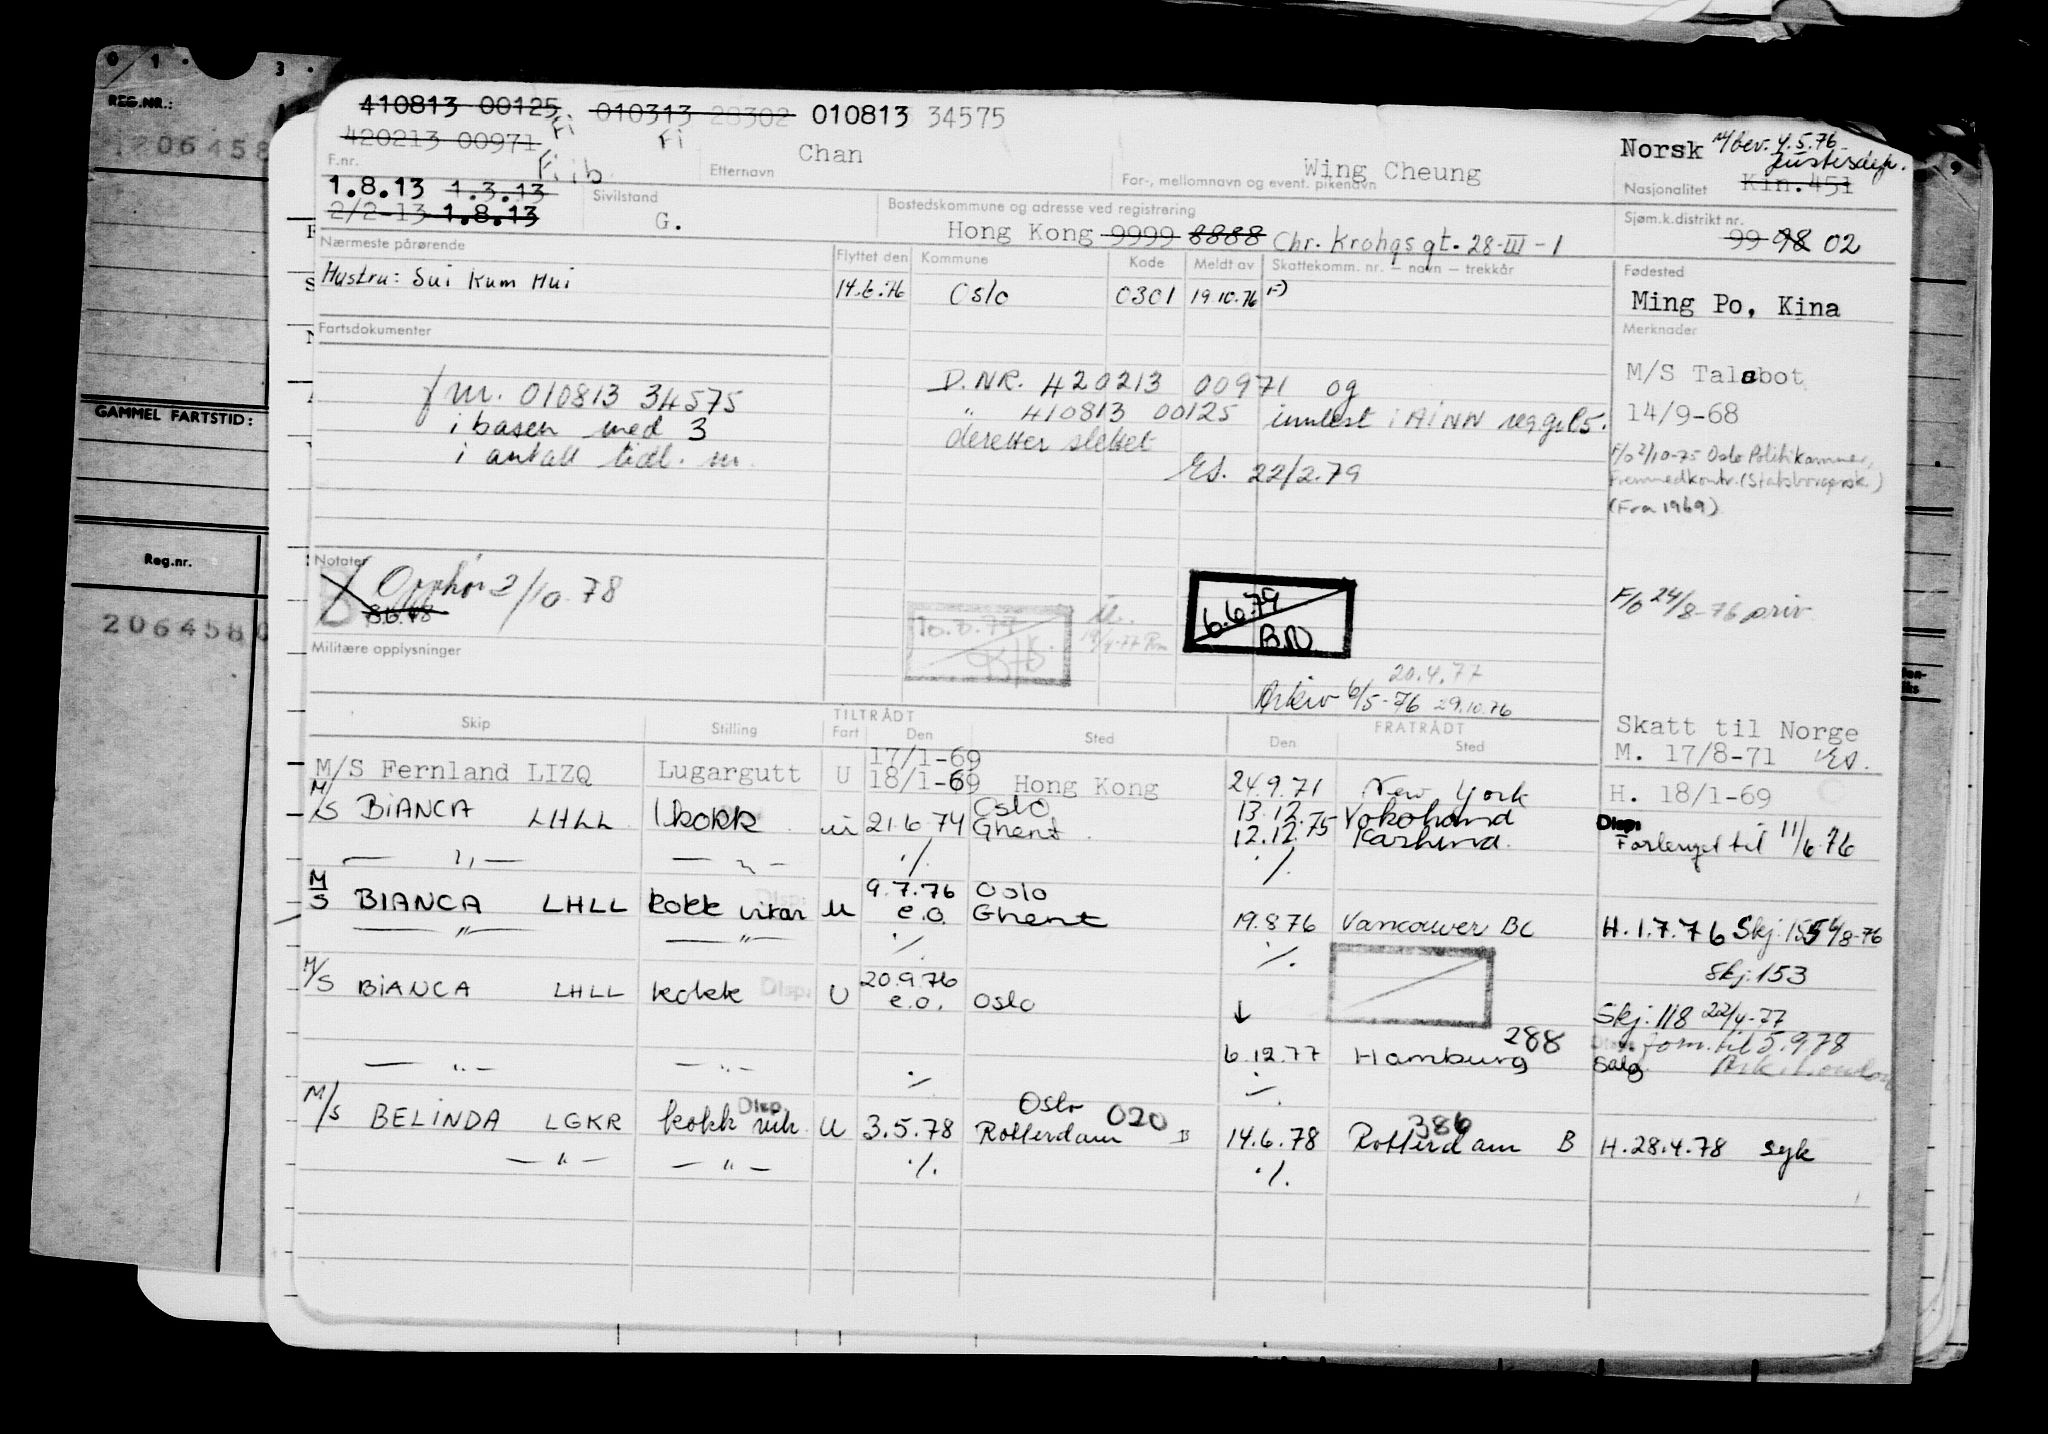 0 1 . 3 .
REG.NR.:
1206458
GAMMEL FARTSTID:
Reg.nr.
2064580
410813 00125 010313 28302 010813 34575
420213 00971 Fi Fi
Chan
Wing Cheung
Norsk M/bev. 4.5.76
Justisdep.
F.nr.
Etternavn
For-, mellomnavn og event. pikenavn
Nasjonalitet Kin.451
1.8.13 1.3.13
2/2-13 1.8.13
Sivilstand
G.
Bostedskommune og adresse ved registrering
Hong Kong 9999 8888 Chr. Krohgsgt. 28-III-1
Sjøm.k.distrikt nr.
99 98 02
Nærmeste pårørende
Flyttet den Kommune Kode Meldt av Skattekomm. nr. — navn — trekkår
Fødested
Hustru: Sui Kum Hui
14.6.76 Oslo 0301 19.10.76 F)
Ming Po, Kina
Fartsdokumenter
Merknader
M/S Talabot
14/9-68
f nr. 010813 34575
i basen med 3
i antall tidl. nr.
D.NR. 420213 00971 og
" 410813 00125 innlest i AINN
deretter slettet
Es. 22/2.79
F/o 2/10-75 Oslo Politikammer,
Fremmedkontr. (Statsborgersk.)
(Fra 1969)
Notater
Opphør 2/10.78
8.6.78
F/o 24/8-76 priv
10.6.77
6.6.79
B.N.
Militære opplysninger
20.4.77
Arkiv 6/5-76 29.10.76
Skip Stilling TILTRÅDT Fart Den Sted FRATRÅDT Den Sted
Skatt til Norge
M. 17/8-71 Es.
17/1-69
M/S Fernland LIZQ Lugargutt U 18/1-69 Hong Kong 24.9.71 New York
H. 18/1-69
M/S BIANCA LHLL kokk u 21.6.74 Oslo Ghent 13.12.75 Yokohama
12.12.75 Kashima
Disp: Forlenget til 11/6.76
— " — — " — ./. ./.
M/S BIANCA LHLL kokk vikar U 9.7.76 e.o. Oslo Ghent 19.8.76 Vancouver BC H.1.7.76 Skj. 155 6/8-76
— " — — " — ./. ./.
Skj. 153
M/S BIANCA LHLL kokk Disp: U 20.9.76 e.o. Oslo ↓
Skj. 118 22/4-77
forn. til 5.9.78
— " — — " — ./. 6.12.77 Hamburg 288 Salg
./.
M/S BELINDA LGKR kokk vik. Disp U 3.5.78 Oslo Rotterdam 020 B 14.6.78 Rotterdam 386 B H.28.4.78 syk
— " — — " — ./. ./.